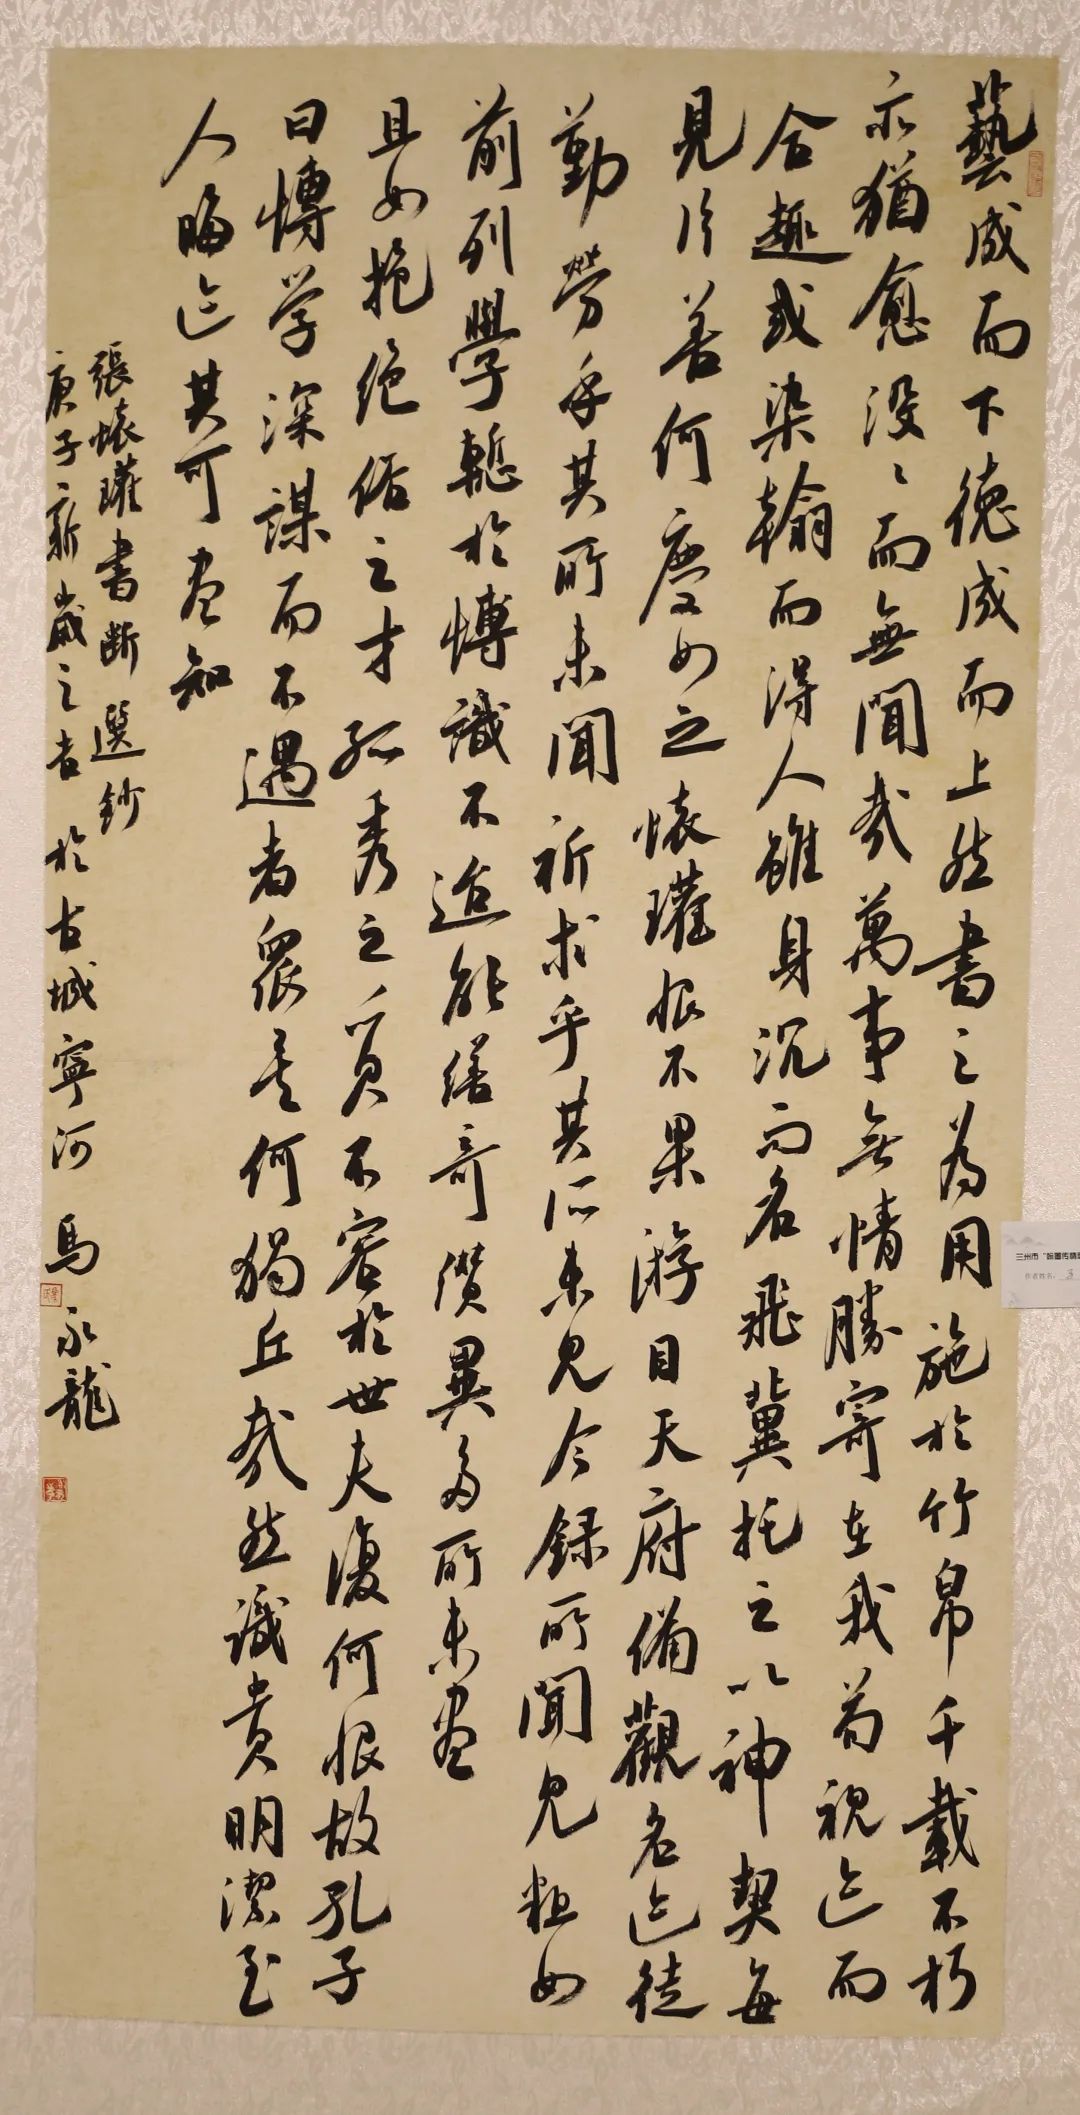 藝成而下德成而上然書之為用施於竹帛千載不朽
亦猶愈没々而無聞哉萬事無情勝寄在我苟視迹而
合趣或染翰而得人雖身沉而名飛冀托之以神契每
見片善何慶如之懷瓘恨不果游目天府備觀名迹徒
勤勞乎其所未聞祈求乎其所未見今録所聞見粗如
前列學慙於博識不迨能繕奇纘異多所未盡
且如抱绝俗之才孤秀之質不容於世夫復何恨故孔子
曰博学深謀而不遇者衆矣何獨丘哉然識貴明潔至
人晦迹其可盡知
張懷瓘書断選鈔
庚子新歲之吉於古城寧河馬永龍
兰州市“翰墨传情
作者姓名：